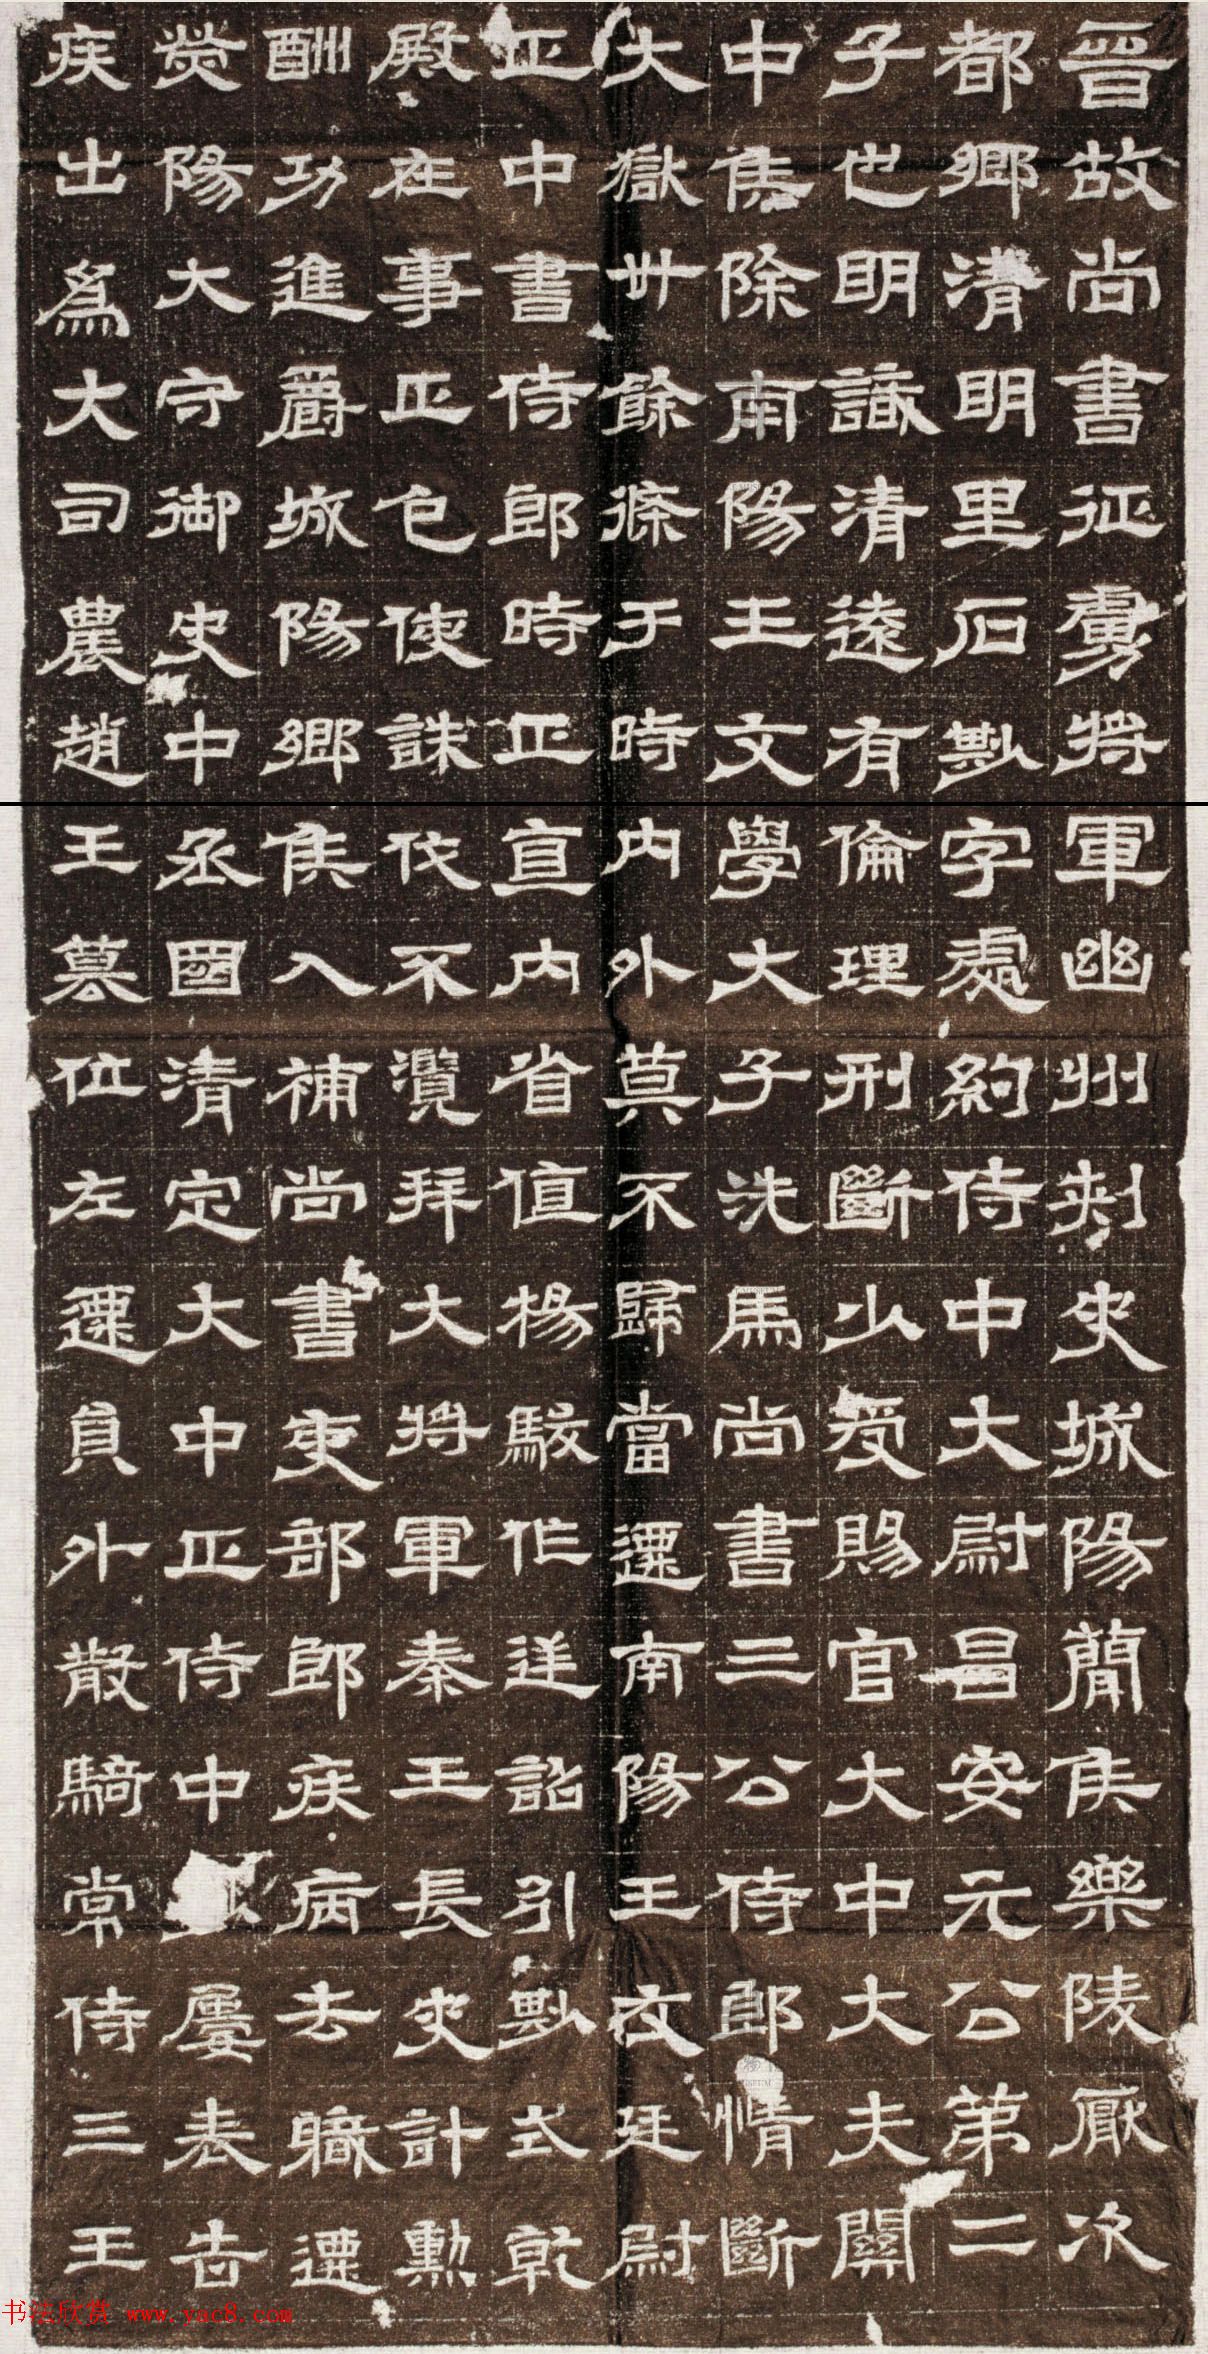 晉故尚書征虜將軍幽州刺史城陽簡侯樂陵厭次
都鄉清明里石尠字處約侍中大尉昌安元公第二
子也明識清遠有倫理刑斷少受賜官大中大夫關
中侯除南陽王文學大子洗馬尚書三公侍郎情斷
大獄卅餘條于時內外莫不歸當遷南陽王友廷尉
正中書侍郎時正直內省值楊駿作逆詔引尠式乾
殿在事正色使誅伐不濫拜大將軍秦王長史計勳
酬功進爵城陽鄉侯入補尚書吏部郎疾病去職遷
熒陽大守御史中丞國清定大中正侍中屢表告
疾出為大司農趙王篡位左遷員外散騎常侍三王
书法欣赏 www.yac8.com